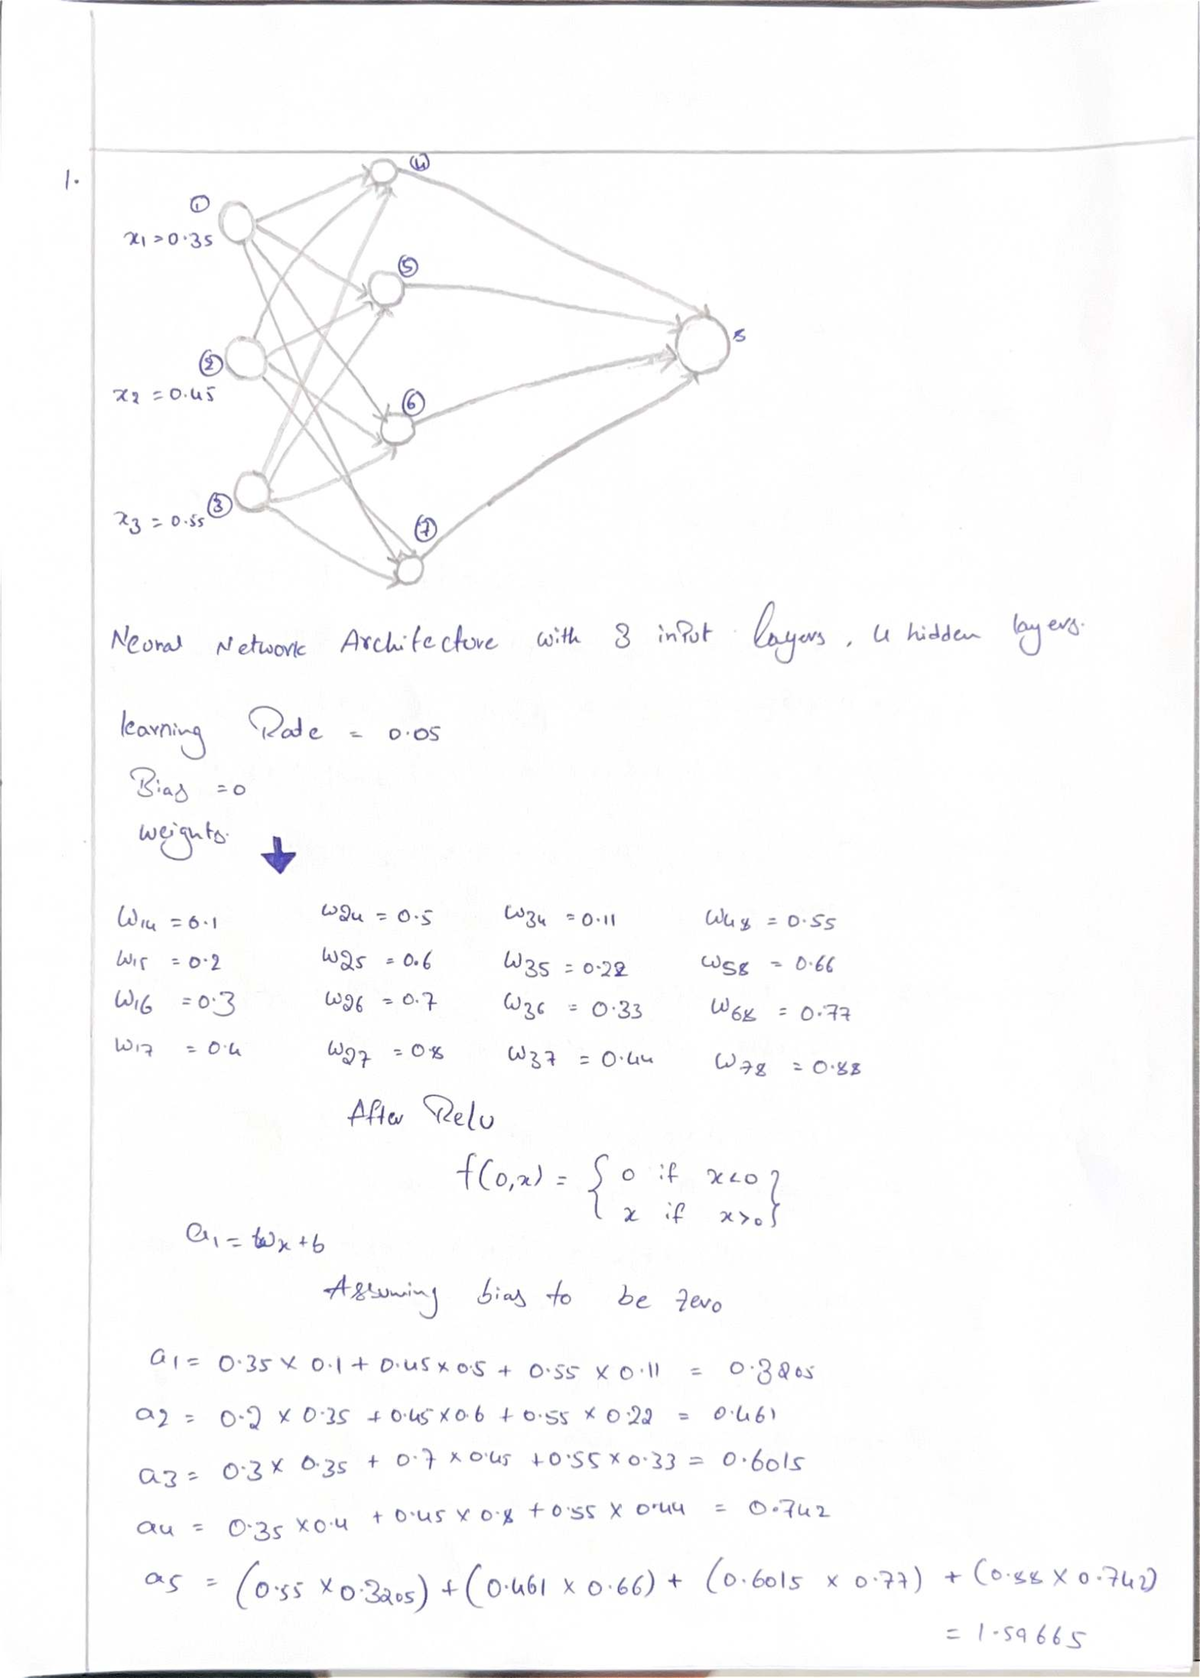 1.
①
④
x1 = 0.35
⑤
8
②
x2 = 0.45
⑥
③
x3 = 0.55
⑦
Neural Network Architecture with 3 input layers, 4 hidden layers.
learning Rate = 0.05
Bias = 0
weights. ↓
W14 = 0.1 W24 = 0.5 W34 = 0.11 W48 = 0.55
W15 = 0.2 W25 = 0.6 W35 = 0.22 W58 = 0.66
W16 = 0.3 W26 = 0.7 W36 = 0.33 W68 = 0.77
W17 = 0.4 W27 = 0.8 W37 = 0.44 W78 = 0.88
After Relu
f(0,x) = { 0 if x<0
x if x>0 }
a1 = wx + b
Assuming bias to be zero
a1 = 0.35 × 0.1 + 0.45 × 0.5 + 0.55 × 0.11 = 0.3205
a2 = 0.2 × 0.35 + 0.45 × 0.6 + 0.55 × 0.22 = 0.461
a3 = 0.3 × 0.35 + 0.7 × 0.45 + 0.55 × 0.33 = 0.6015
a4 = 0.35 × 0.4 + 0.45 × 0.8 + 0.55 × 0.44 = 0.742
a5 = (0.55 × 0.3205) + (0.461 × 0.66) + (0.6015 × 0.77) + (0.88 × 0.742)
= 1.59665